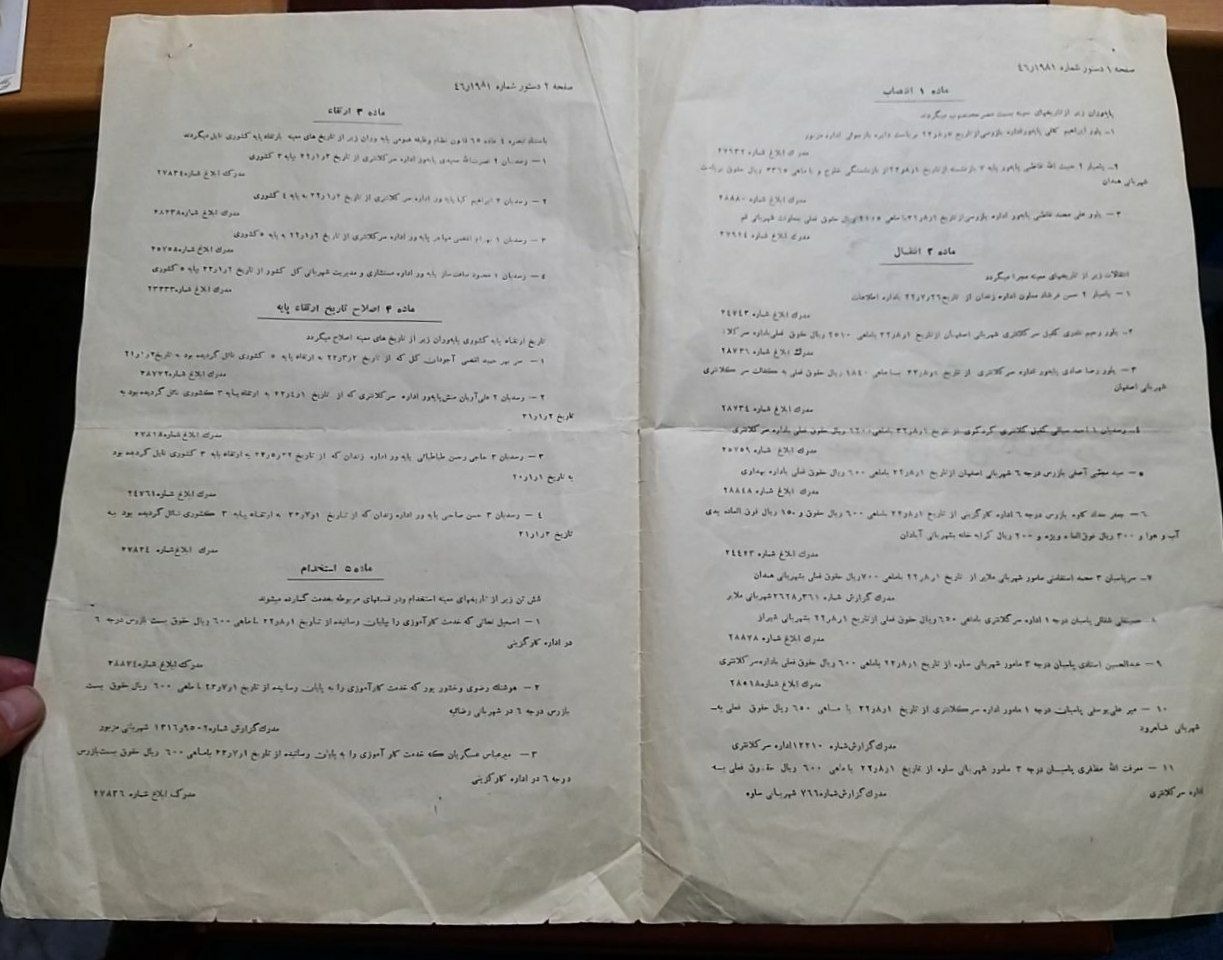 صفحه ۱ دستور شماره ۴۶ر۱۹۸۱
ماده ۱ انتصاب
پایه‌وران زیر از تاریخهای معینه بسمت منصوب میگردند
۱ــ یاور ابراهیم پایه‌ور اداره بازرسی از تاریخ ۲۲ بریاست دایره بازجوئی اداره مزبور
مدرك ابلاغ شماره ۲۷۹۳۲
۲ــ پاسیار ۲ حبیب الله فاطمی پایه‌ور پایه ۷ بازنشسته از تاریخ ۱ر۸ر۲۲ از بازنشستگی خارج و با ماهی ۳۳۶۵ ریال حقوق بریاست
شهربانی همدان
مدرك ابلاغ شماره ۲۸۸۸۰
۳ ــ یاور علی محمد فاطمی پایه‌ور اداره بازرسی از تاریخ ۱ر۸ر۲۲ با ماهی ریال حقوق فعلی بمعاونت شهربانی قم
مدرك ابلاغ شماره ۲۷۹۶۴
ماده ۲ انتقال
انتقالات زیر از تاریخهای معینه مجرا میگردد
۱ ــ پاسیار ۲ حسن فرشاد معاون اداره زندان از تاریخ ۲۶ر۷ر۲۲ باداره اطلاعات
مدرك ابلاغ شماره ۲۴۷۴۳
۲ــ یاور رحیم نادری کفیل سرکلانتری شهربانی اصفهان از تاریخ ۱ر۸ر۲۲ باماهی ۲۵۱۰ ریال حقوق فعلی باداره سرکلا
مدرك ابلاغ شماره ۲۸۷۳۶
۳ ــ یاور رضا صادی پایه‌ور اداره سرکلانتری از تاریخ ۱ر۸ر۲۲ بماهی ۱۸۴۰ ریال حقوق فعلی به کفالت سرکلانتری
شهربانی اصفهان
مدرك ابلاغ شماره ۲۸۷۳۴
٤ــ رسدبان ۱ احمد کفیل کلانتری از تاریخ ۱ر۸ر۲۲ باماهی ۱۲۰۰ ریال حقوق فعلی باداره سرکلانتری
مدرك ابلاغ شماره ۲۵۷۵۹
۵ ــ سید مجتبی آصفی بازرس درجه ٦ شهربانی اصفهان از تاریخ ۱ر۸ر۲۲ باماهی ٦۰۰ ریال حقوق فعلی باداره بهداری
مدرك ابلاغ شماره ۲۸۸٤۸
٦ــ جعفر حداد کاوه بازرس درجه ٦ اداره کارگزینی از تاریخ ۱ر۸ر۲۲ باماهی ٦۰۰ ریال حقوق و ۱۵۰ ریال فوق العاده بدی
آب و هوا و ۳۰۰ ریال فوق‌العاده ویژه و ۲۰۰ ریال کرایه خانه بشهربانی آبادان
مدرك ابلاغ شماره ۲٤٤۲۳
۷ــ سرپاسبان ۳ محمد استقامتی مامور شهربانی ملایر از تاریخ ۱ر۸ر۲۲ باماهی ۷۰۰ ریال حقوق فعلی بشهربانی همدان
مدرك گزارش شماره ۳٦۱ر۲٦۲۸ شهربانی ملایر
۸ــ حسینعلی شفائی پاسبان درجه ۱ اداره سرکلانتری باماهی ٦۵۰ ریال حقوق فعلی از تاریخ ۱ر۸ر۲۲ بشهربانی شیراز
مدرك ابلاغ شماره ۲۸۸۷۸
۹ ــ عبدالحسین استادی پاسبان درجه ۳ مامور شهربانی ساوه از تاریخ ۱ر۸ر۲۲ باماهی ٦۰۰ ریال حقوق فعلی باداره سرکلانتری
مدرك ابلاغ شماره ۲۸۵٦۸
۱۰ ــ میر علی یوسفی پاسبان درجه ۱ مامور اداره سرکلانتری از تاریخ ۱ر۸ر۲۲ با ماهی ٦۵۰ ریال حقوق فعلی به
شهربانی شاهرود
مدرك گزارش شماره ۱۲۲۱۰ اداره سرکلانتری
۱۱ ــ معرفت الله مظفری پاسبان درجه ۳ مامور شهربانی ساوه از تاریخ ۱ر۸ر۲۲ باماهی ٦۰۰ ریال حقوق فعلی به
اداره سرکلانتری
مدرك گزارش شماره ۷٦٦ شهربانی ساوه
صفحه ۲ دستور شماره ۴۶ر۱۹۸۱
ماده ۳ ارتقاء
باستناد تبصره ٤ ماده ٦۵ قانون نظام وظیفه عمومی پایه وران زیر از تاریخ های معینه بارتقاء پایه کشوری نایل میگردند
۱ــ رسدبان ۲ نصرت‌الله سیدی پایه‌ور اداره سرکلانتری از تاریخ ۲ر۱ر۲۲ بپایه ۳ کشوری
مدرك ابلاغ شماره ۲۷۸۳٤
۲ــ رسدبان ۲ ابراهیم کیا پایه ور اداره سرکلانتری از تاریخ ۲ر۱ر۲۲ به پایه ٤ کشوری
مدرك ابلاغ شماره ۲۸۲۳۸
۳ ــ رسدبان ۱ بهرام افضمی مهاجر پایه ور اداره سرکلانتری از تاریخ ۲ر۱ر۲۲ به پایه ۵ کشوری
مدرك ابلاغ شماره ۲۵۷۵۸
٤ــ رسدبان ۱ محمود ساعت ساز پایه ور اداره مستشاری و مدیریت شهربانی کل کشور از تاریخ ۲ر۱ر۲۲ بپایه ۵ کشوری
مدرك ابلاغ شماره ۲۳۳۳۳
ماده ۴ اصلاح تاریخ ارتقاء پایه
تاریخ ارتقاء پایه کشوری پایه‌وران زیر از تاریخ های معینه اصلاح میگردد
۱ــ سر بهر حمید افضمی آجودان کل که از تاریخ ۲ر۳ر۲۲ به ارتقاء پایه ۵ کشوری نائل گردیده بود به تاریخ ۲ر۱ر۲۱
مدرك ابلاغ شماره ۲۸۷۷۲
۲ ــ رسدبان ۲ علی آریان منش پایه‌ور اداره سرکلانتری که از تاریخ ۱ر٤ر۲۲ به ارتقاء پایه ۳ کشوری نائل گردیده بود به
تاریخ ۲ر۱ر۲۱
مدرك ابلاغ شماره ۲۷۸۱۸
۳ ــ رسدبان ۳ حاجی رحسن طباطبائی پایه ور اداره زندان که از تاریخ ۲۲ر۵ر۲۲ به ارتقاء پایه ۳ کشوری نایل گردیده بود
به تاریخ ۱ر۱ر۲۰
مدرك ابلاغ شماره ۲٤۷٦٤
٤ ــ رسدبان ۳ حسن صاحبی پایه ور اداره زندان که از تاریخ ۱ر۷ر۲۲ به ارتقاء پایه ۳ کشوری نائل گردیده بود به
تاریخ ۲ر۱ر۲۱
مدرك ابلاغ شماره ۲۷۸۲٤
ماده ۵ استخدام
شش تن زیر از تاریخهای معینه استخدام و در قسمتهای مربوطه بخدمت گمارده میشوند
۱ ــ اسمعیل نجاتی که خدمت کارآموزی را بپایان رسانیده از تاریخ ۱ر۸ر۲۲ با ماهی ٦۰۰ ریال حقوق بسمت بازرس درجه ٦
در اداره کارگزینی
مدرك ابلاغ شماره ۲۸۸۷٤
۲ ــ هوشنك رضوی وخشور پور که خدمت کارآموزی را به پایان رسانیده از تاریخ ۱ر۷ر۲۲ با ماهی ٦۰۰ ریال حقوق بسمت
بازرس درجه ٦ در شهربانی رضائیه
مدرك گزارش شماره ۹۵۰۲ر۱۳۱٦ شهربانی مزبور
۳ ــ میرعباس عسگریان که خدمت کار آموزی را به پایان رسانده از تاریخ ۱ر۷ر۲۲ باماهی ٦۰۰ ریال حقوق بسمت بازرس
درجه ٦ در اداره کارگزینی
مدرك ابلاغ شماره ۲۷۸۳٦